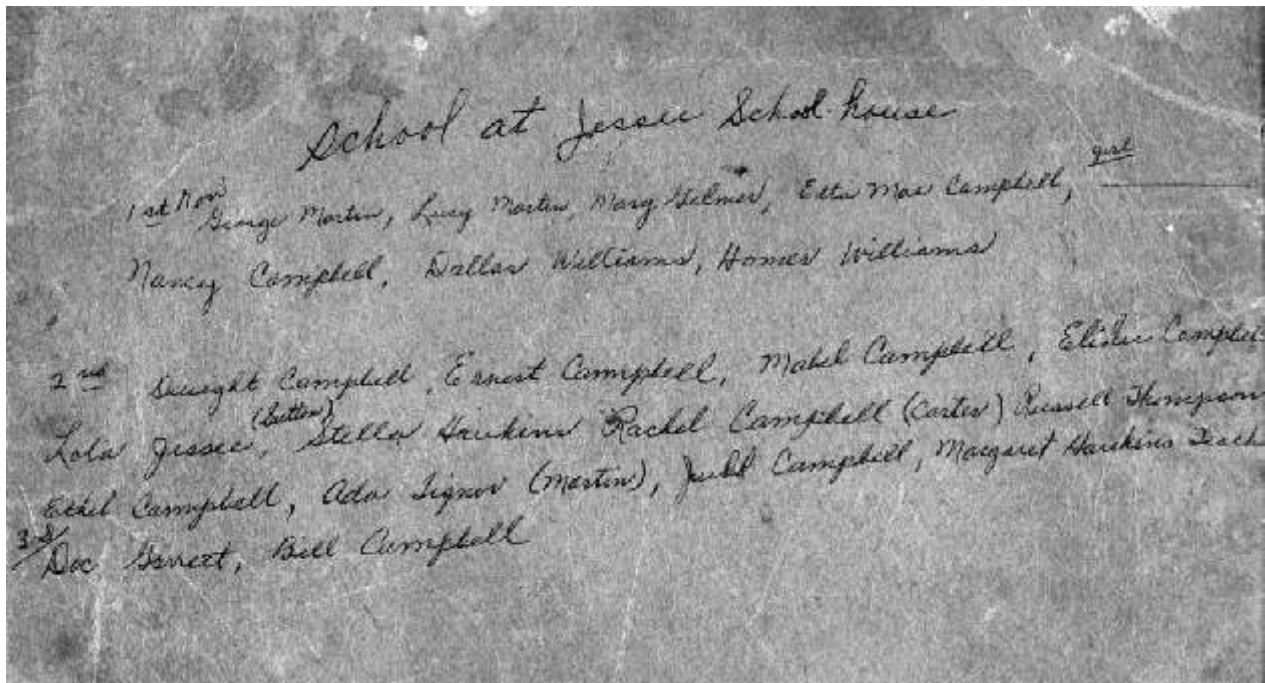 School at Jessee School house
girl
1st Row George Martin, Lucy Martin, Mary Gilmer, Etta Mae Campbell,
Nancy Campbell, Dallas Williams, Homer Williams
2nd Dwight Campbell, Ernest Campbell, Mabel Campbell,
(Sutton)
Lola Jessee, Stella Hawkins Rachel Campbell (Carter) Russell Thompson
Ethel Campbell, Ada Signor (Martin), Judd Campbell, Margaret Hawkins
3rd Doc Garrett, Bill Campbell